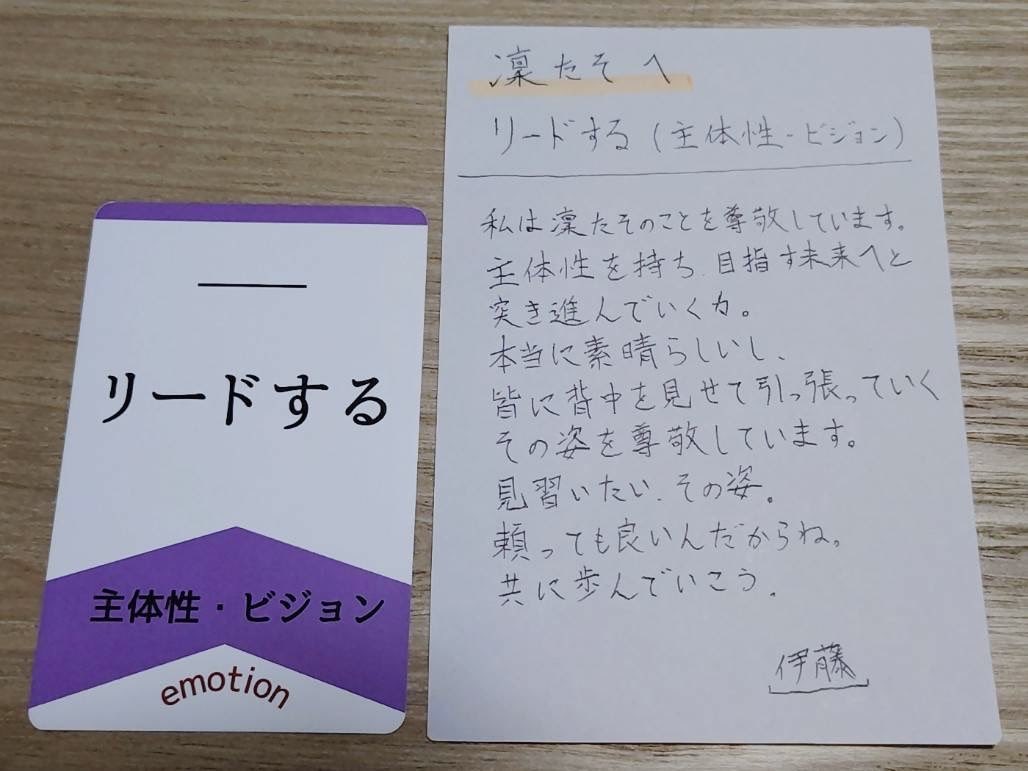 リードする
主体性・ビジョン
emotion
凛たそへ
リードする(主体性・ビジョン)
私は凛たそのことを尊敬しています。
主体性を持ち、目指す未来へと
突き進んでいく力。
本当に素晴らしいし、
皆に背中を見せて引っ張っていく
その姿を尊敬しています。
見習いたい、その姿。
頼っても良いんだからね。
共に歩んでいこう。
伊藤